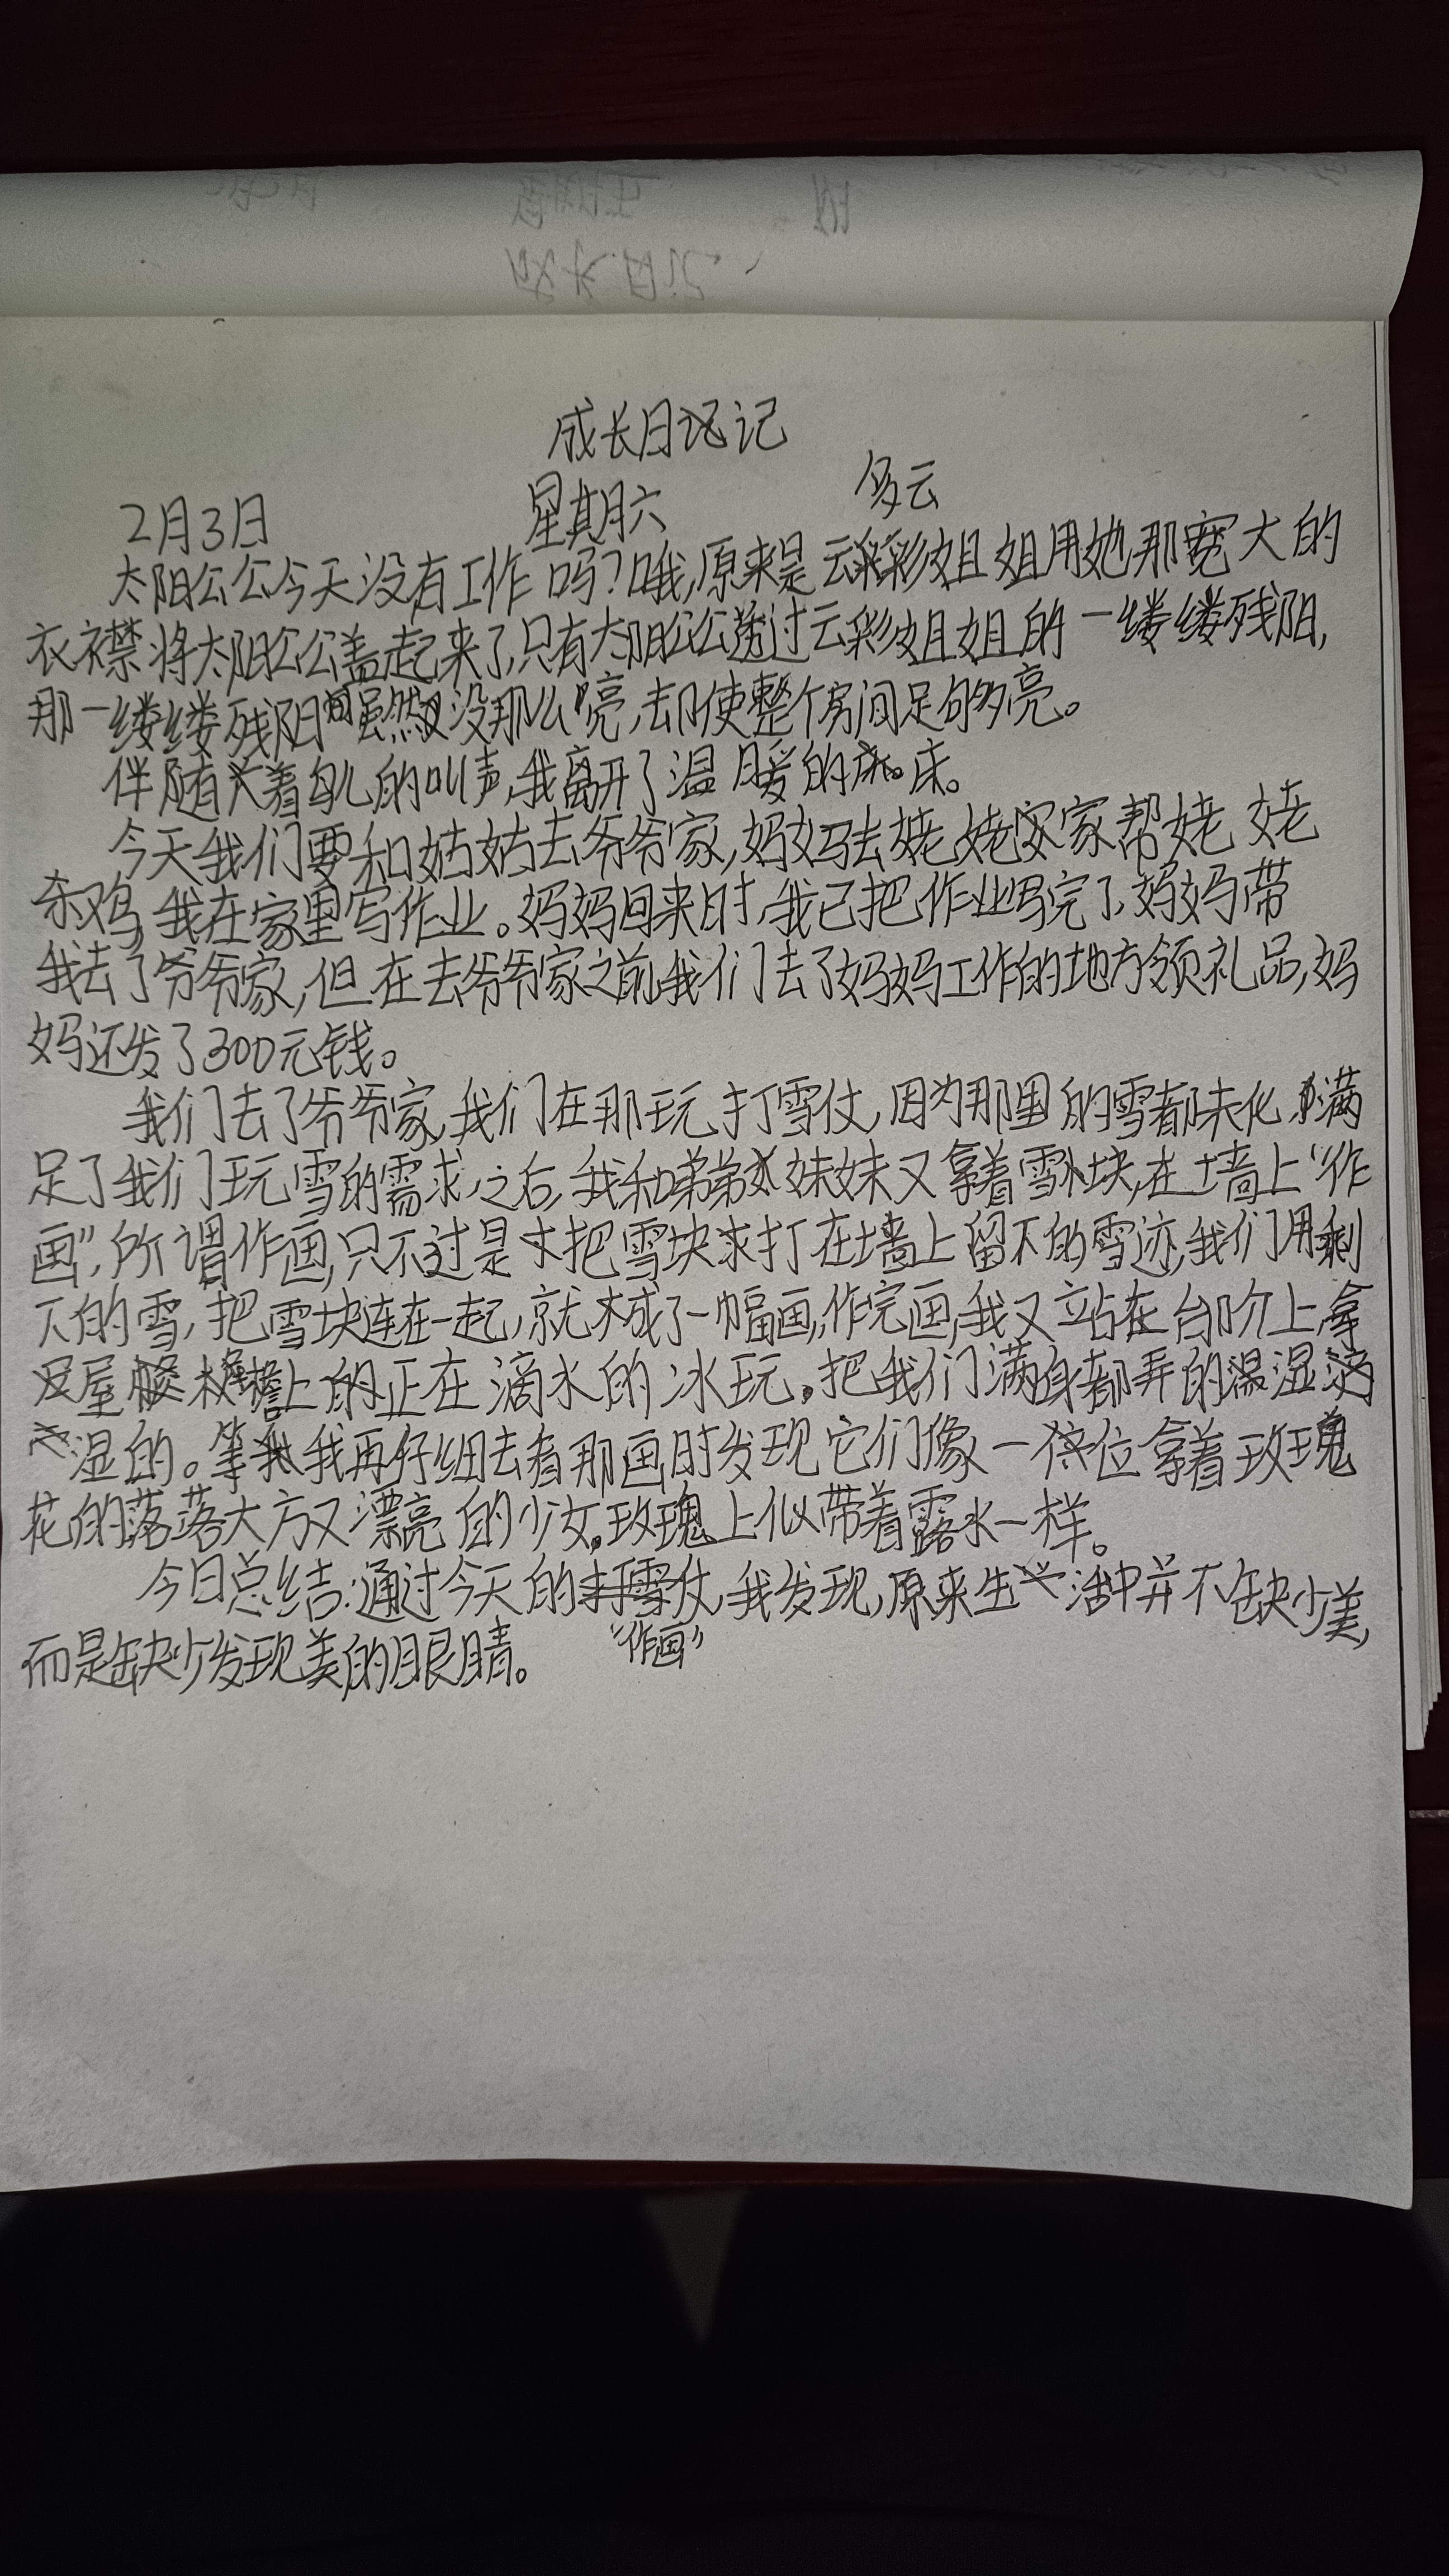 成长日记
2月3日 星期六 多云
太阳公公今天没有工作吗?哦,原来是云彩姐姐用她那宽大的
衣襟将太阳公公盖起来了,只有太阳公公透过云彩姐姐的一缕缕残阳,
那一缕缕残阳虽然没那么亮,却使整个房间足够亮。
伴随着鸟儿的叫声,我离开了温暖的床。
今天我们要和姑姑去爷爷家,妈妈去姥姥家帮姥姥
杀鸡,我在家里写作业。妈妈回来时,我已把作业写完了,妈妈带
我去了爷爷家,但在去爷爷家之前,我们去了妈妈工作的地方领礼品,妈
妈还发了300元钱。
我们去了爷爷家,我们在那玩打雪仗,因为那里的雪都未化,满
足了我们玩雪的需求,之后,我和弟弟妹妹又拿着雪块,在墙上“作
画”,所谓作画,只不过是把雪块求打在墙上留下的雪迹,我们用剩
下的雪,把雪块连在一起,就成了一幅画,作完画,我又立站在台阶上,拿
屋檐上的正在滴水的冰玩。把我们满身都弄的湿
湿的。等我再仔细去看那画时发现它们像一位拿着玫瑰
花的落落大方又漂亮的少女,玫瑰上似带着露水一样。
今日总结:通过今天的“作画”,我发现,原来生活中并不缺少美,
而是缺少发现美的眼睛。